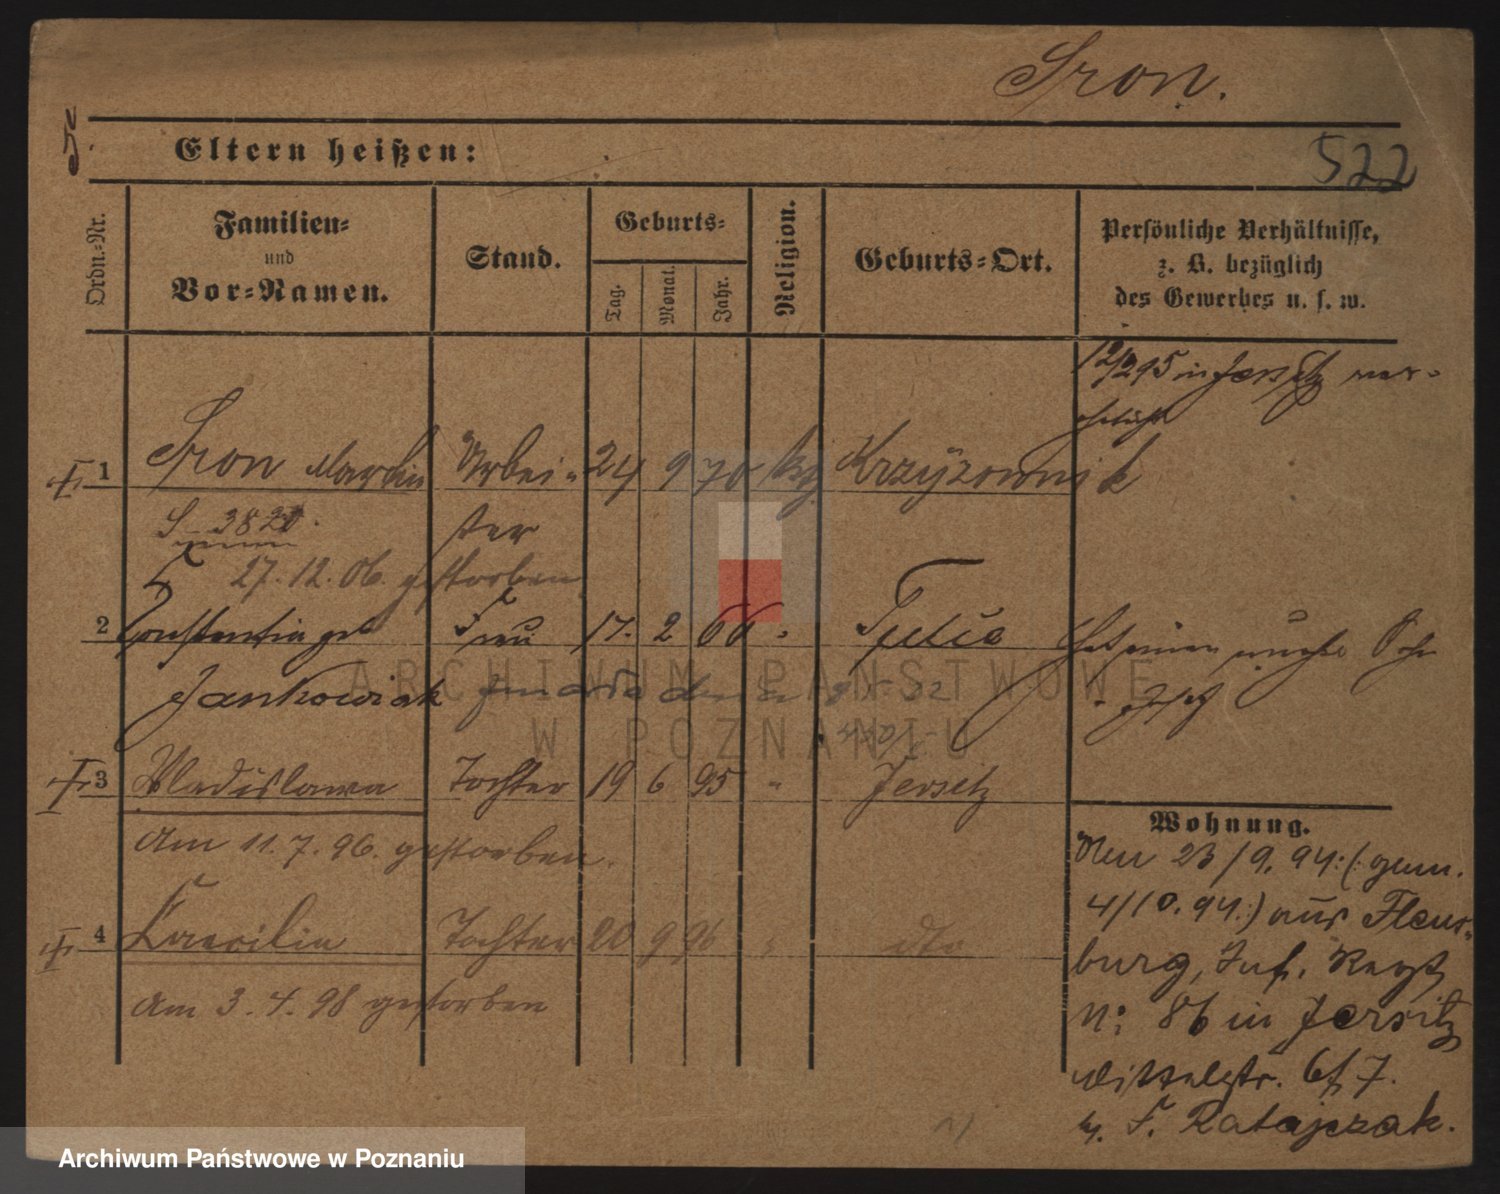 Sron.
5.
Eltern heißen:
522
Ordn.-Nr.
Familien-
und
Vor-Namen.
Stand.
Geburts-
Tag.
Monat.
Jahr.
Religion.
Geburts-Ort.
Persönliche Verhältnisse,
z. B. bezüglich
des Gewerbes u. s. w.
12/2 95 in Jersitz ver-
ehelicht
1 Sron Martin Arbei- 24 9 70 kg Krzyżownik
S 3820. ter
27.12.06. gestorben
2 Constantia geb Frau 17. 2 66 "
Jankowiak
3 Wladislawa Tochter 19 6 95 " Jersitz
Am 11.7.96. gestorben.
4 Caecilia Tochter 20 9 96 " dto
Am 3.4.98 gestorben
Wohnung.
Den 23/9.94 (:gem.
4/10.94:) aus Flens-
burg, Inf. Regt
N: 86 in Jersitz
6/7.
b. F. Ratajczak.
ARCHIWUM PAŃSTWOWE
W POZNANIU
Archiwum Państwowe w Poznaniu